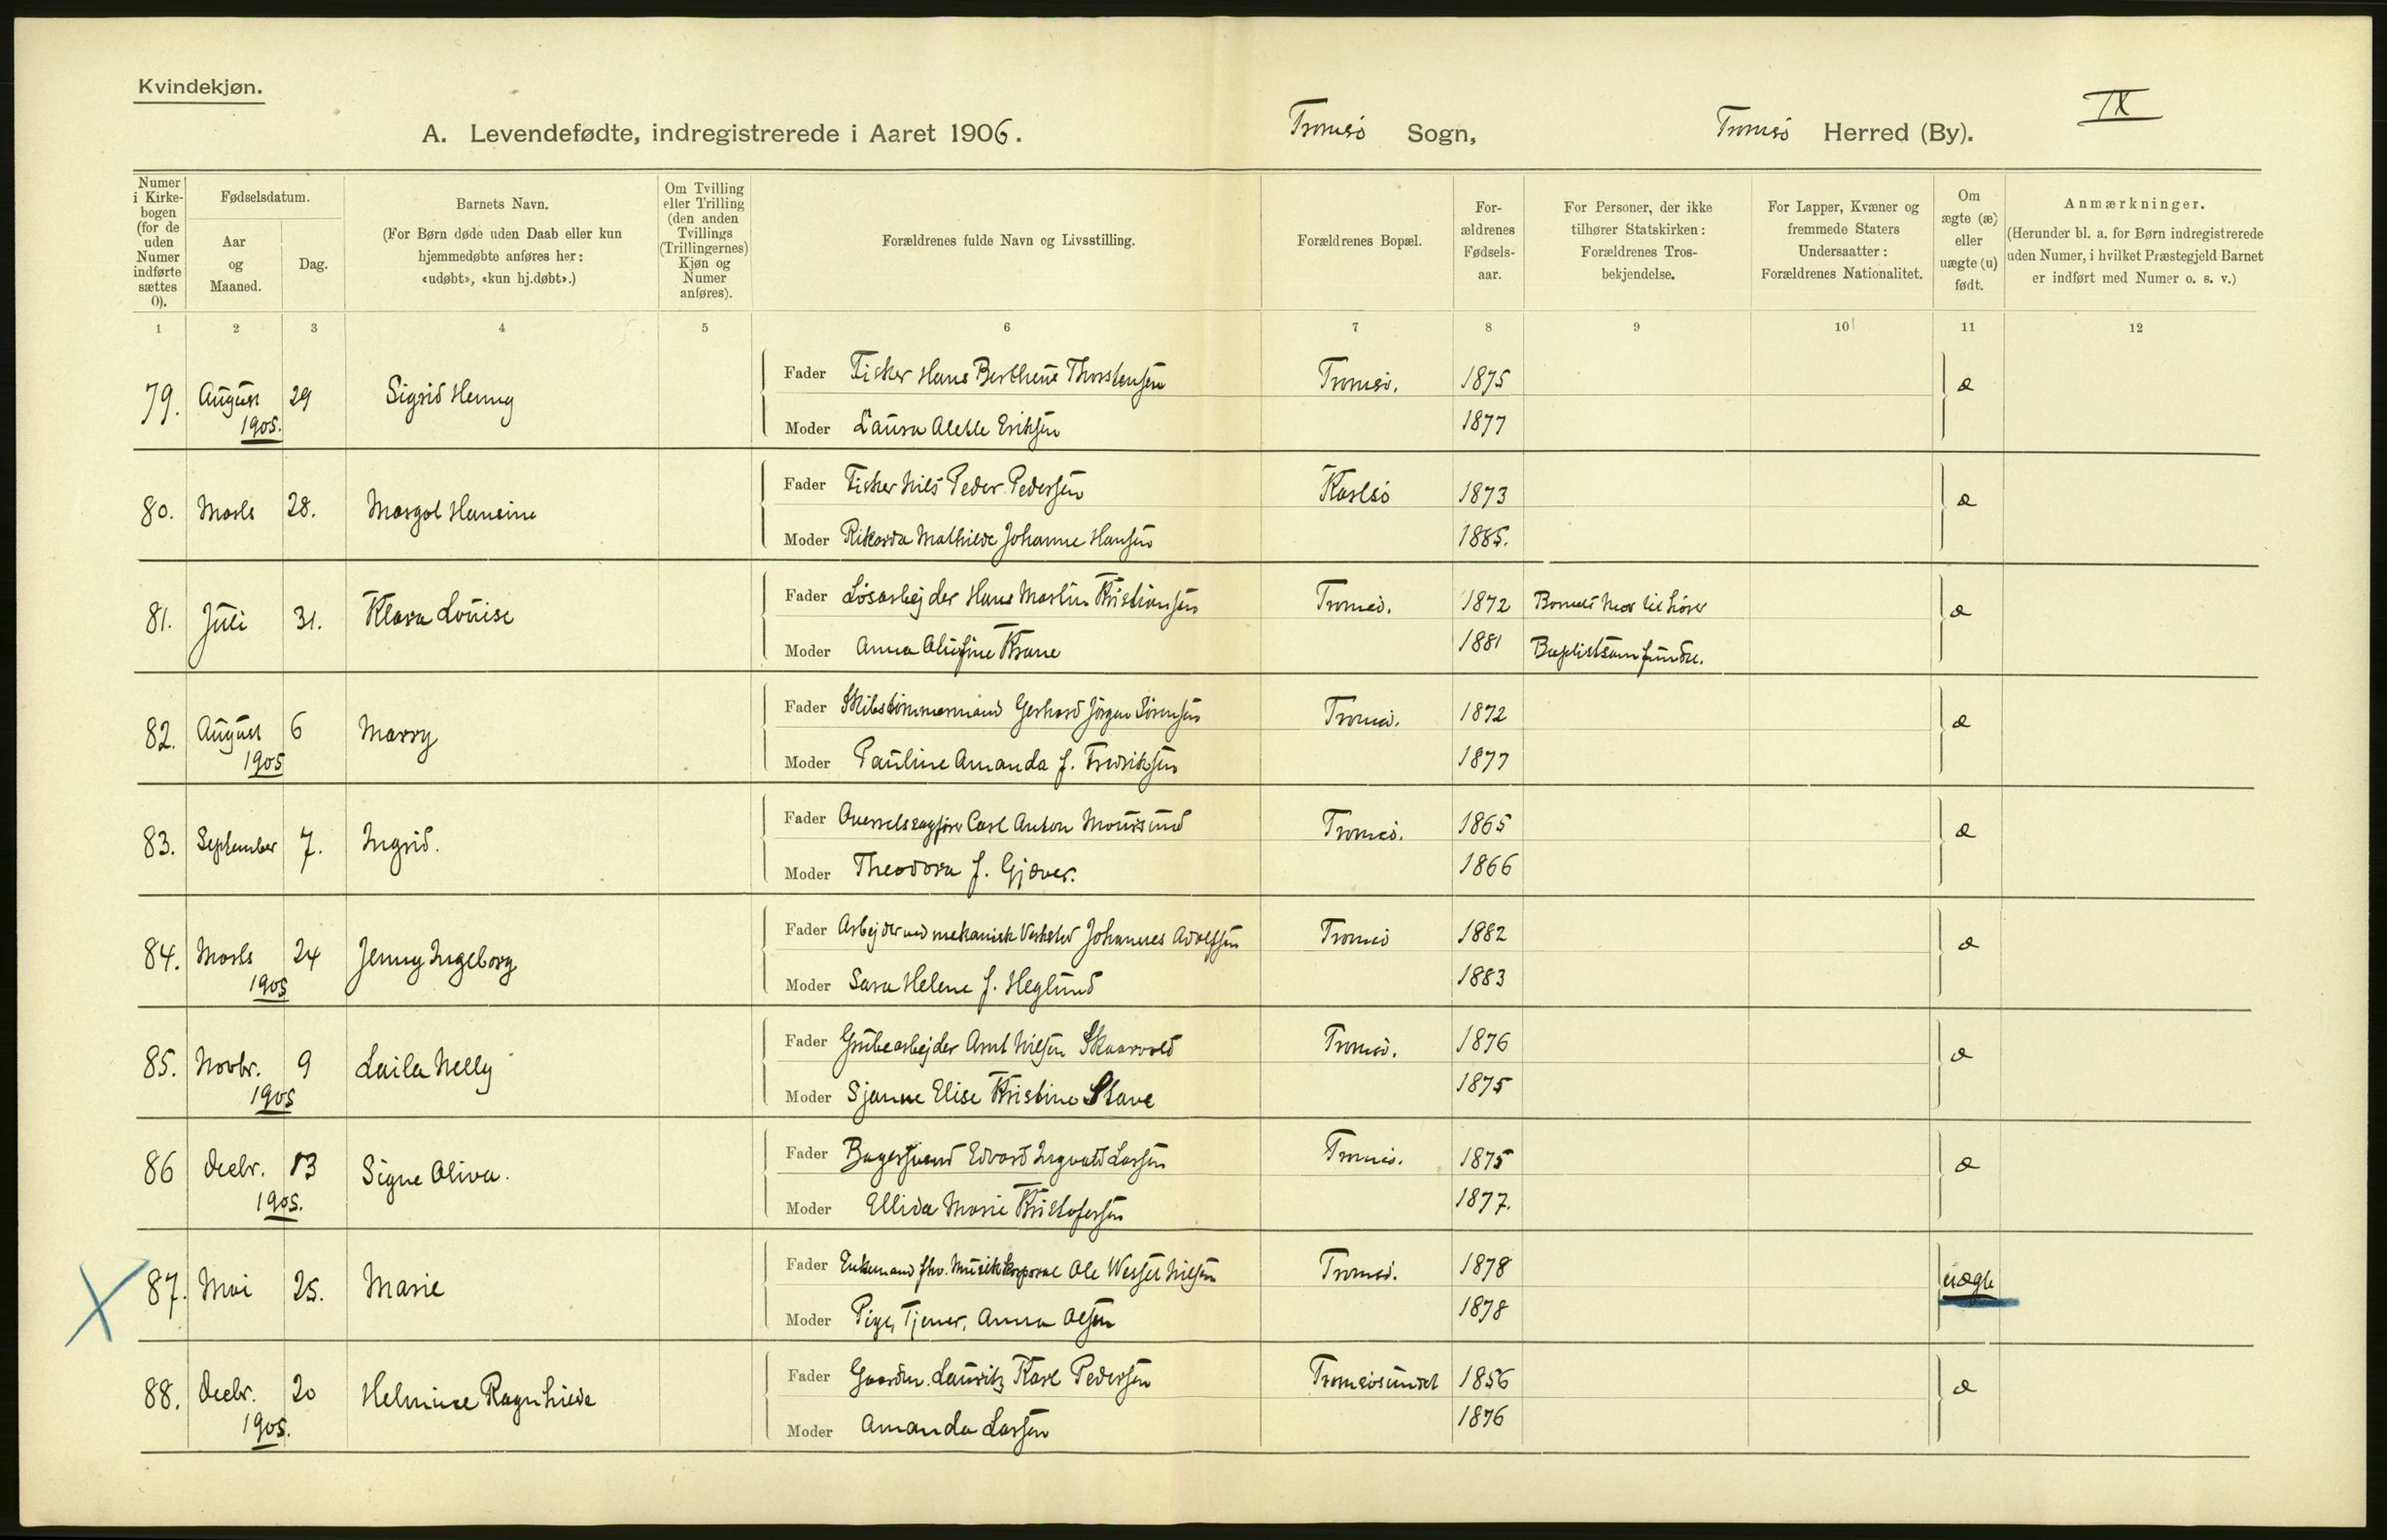 Kvindekjøn.
IX
A. Levendefødte, indregistrerede i Aaret 1906.
Tromsø Sogn, Tromsø Herred (By).
Numer i Kirkebogen (for de uden Numer indførte sættes 0).
Fødselsdatum.
Aar og Maaned.
Dag.
Barnets Navn.
(For Børn døde uden Daab eller kun hjemmedøbte anføres her: «udøbt», «kun hj.døbt».)
Om Tvilling eller Trilling (den anden Tvillings (Trillingernes) Kjøn og Numer anføres).
Forældrenes fulde Navn og Livsstilling.
Forældrenes Bopæl.
Forældrenes Fødselsaar.
For Personer, der ikke tilhører Statskirken: Forældrenes Trosbekjendelse.
For Lapper, Kvæner og fremmede Staters Undersaatter: Forældrenes Nationalitet.
Om ægte (æ) eller uægte (u) født.
Anmærkninger.
(Herunder bl. a. for Børn indregistrerede uden Numer, i hvilket Præstegjeld Barnet er indført med Numer o. s. v.)
1 2 3 4 5 6 7 8 9 10 11 12
79. August 1905. 29 Sigrid Henny
Fader Fisker Hans Bertheus Thorstensen Tromsø. 1875 æ
Moder Laura Alette Eriksen 1877
80. Marts 28. Margot Hansine
Fader Fisker Nils Peder Pedersen Karlsø 1873 æ
Moder Rikarda Mathilde Johanne Hansen 1885.
81. Juli 31. Klara Louise
Fader Løsarbejder Hans Martin Kristiansen Tromsø. 1872 Barnets Mor tilhører æ
Moder Anna Olufine Krane 1881 Baptistsamfundet.
82. August 1905 6 Marry
Fader Skibstømmermand Gerhard Jørgen Sørensen Tromsø. 1872 æ
Moder Pauline Amanda f. Fredriksen 1877
83. September 7. Ingrid.
Fader Overretssagfører Carl Anton Moursund Tromsø. 1865 æ
Moder Theodora f. Gjæver. 1866
84. Marts 1905 24 Jenny Ingeborg
Fader Arbejder ved mekanisk Verksted Johannes Adolfsen Tromsø 1882 æ
Moder Sara Helene f. Heglund 1883
85. Novbr. 1905 9 Laila Nelly
Fader Grubearbejder Arnt Nilsen Skaarvold Tromsø. 1876 æ
Moder Sjanne Elise Kristine Stave 1875
86 Decbr. 1905. 13 Signe Oliva.
Fader Bagersvend Edvard Ingvald Larsen Tromsø. 1875 æ
Moder Ellida Marie Kristofersen 1877.
87. Mai 25. Marie
Fader Enkemand fhv. Musikkorporal Ole Wessel Nilsen Tromsø. 1878 uægte
Moder Pige, Tjener, Anna Olsen 1878
88. Decbr. 1905. 20 Helmine Ragnhilda
Fader Gaardm. Lauritz Karl Pedersen Tromsøsundet 1856 æ
Moder Amanda Larsen 1876